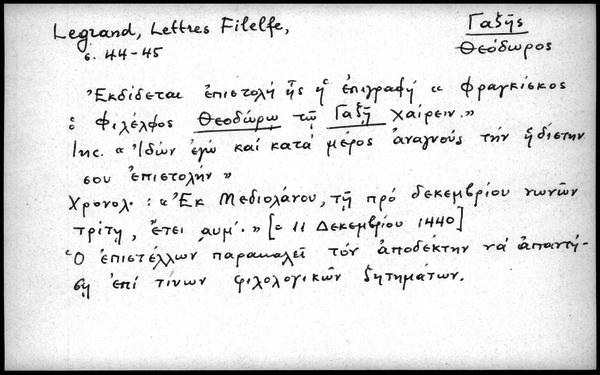 Legrand, Lettres Filelfe,
Γαζῆς
ς. 44-45
Θεόδωρος
Ἐκδίδεται ἐπιστολή ἧς ἡ ἐπιγραφή « Φραγκίσκος
ὁ Φιλέλφος Θεοδώρῳ τῷ Γαζῇ χαίρειν.»
Inc. « Ἰδών ἐγώ καί κατά μέρος ἀναγνούς τήν ἡδίστην
σου ἐπιστολήν »
Χρονολ. : « Ἐκ Μεδιολάνου, τῇ πρό δεκεμβρίου νωνῶν
τρίτῃ, ἔτει ͵αυμ´. » [= 11 Δεκεμβρίου 1440]
Ὁ ἐπιστέλλων παρακαλεῖ τόν ἀποδέκτην νά ἀπαντή-
σῃ ἐπί τινων φιλολογικῶν ζητημάτων.